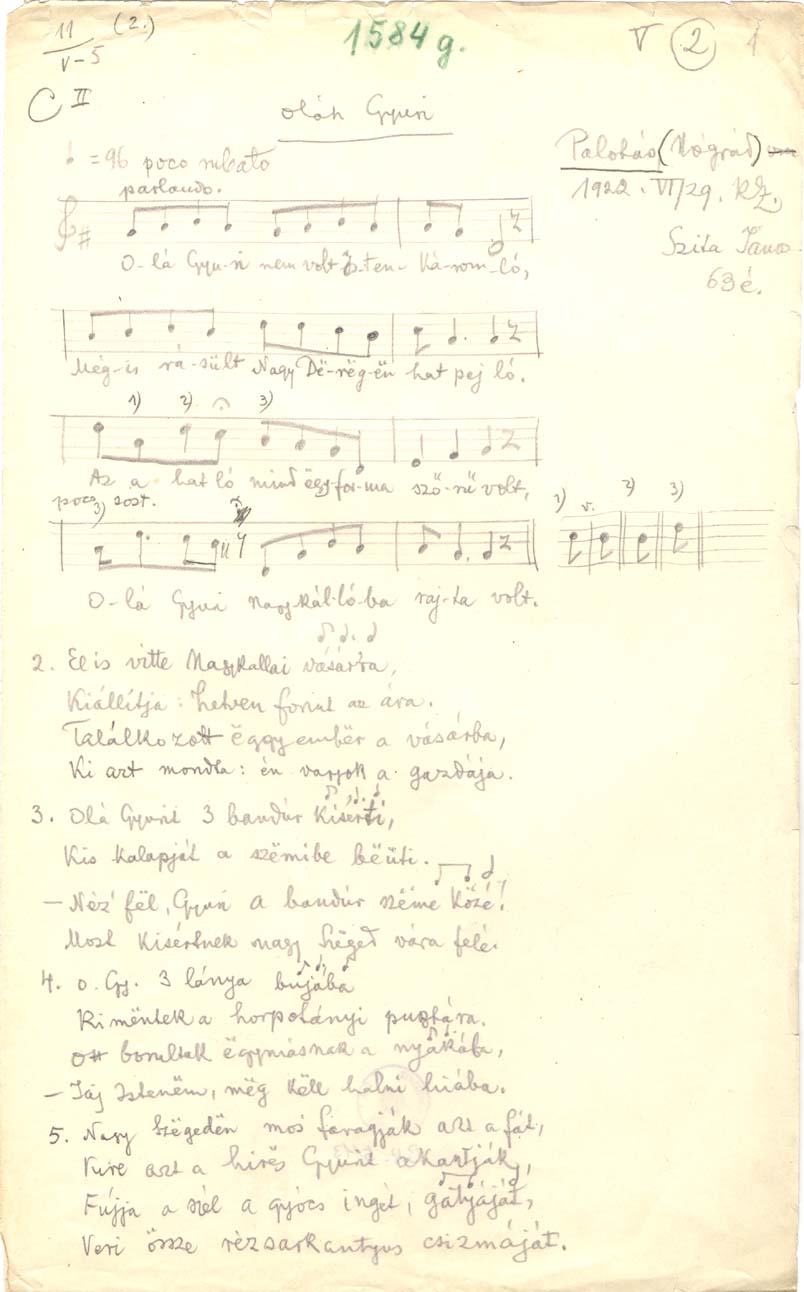 11/V-5 (2.) 1584 g. V 2 1
C II
Oláh Gyuri
♩ = 96 poco rubato
parlando.
Palotás (Nógrád)
1922. VI/29. KZ.
Szita János
63 é.
O-lá Gyu-ri nem volt Is-ten-ká-rom-ló,
Még-is rá-sült Nagy Dë-rëg-ën hat pej ló.
1) 2) 3)
Az a hat ló mind ëgy-for-ma sző-rű volt,
poco sost.
3)
1) v. 2) 3)
O-lá Gyuri nagy-kál-ló-ba raj-ta volt.
2. El is vitte Nagykallai vásárra,
Kiállítja: hetven forint az ára.
Találkozott ëggy embër a vásárba,
Ki azt mondta: én vagyok a gazdája.
3. Olá Gyurit 3 bandúr kisérti,
Kis kalapját a szëmibe bëüti.
– Nézz fël, Gyuri a bandúr szëme közé!
Most kisértnek nagy Szëged vára felé.
4. O. Gy. 3 lánya bujába
Kimëntek a horpotányi pusztára.
Ott borultak ëgymásnak a nyakába,
– Jáj Istenëm, mëg këll halni hiába.
5. Nagy Szëgedën mos faragják azt a fát,
Kire azt a hirës Gyurit akartják,
Fújja a szél a gyócs ingét, gatyáját,
Veri össze rézsarkantyus csizmáját.